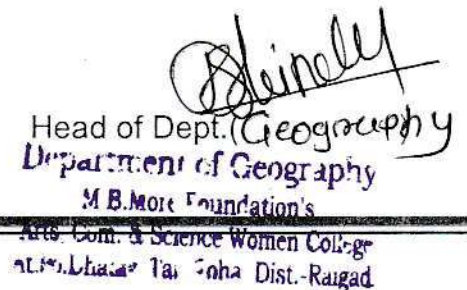 Head of Dept. (Geography
Department of Geography
M.B.More Foundation's
Arts. Com. & Science Women College
Dist.-Raigad